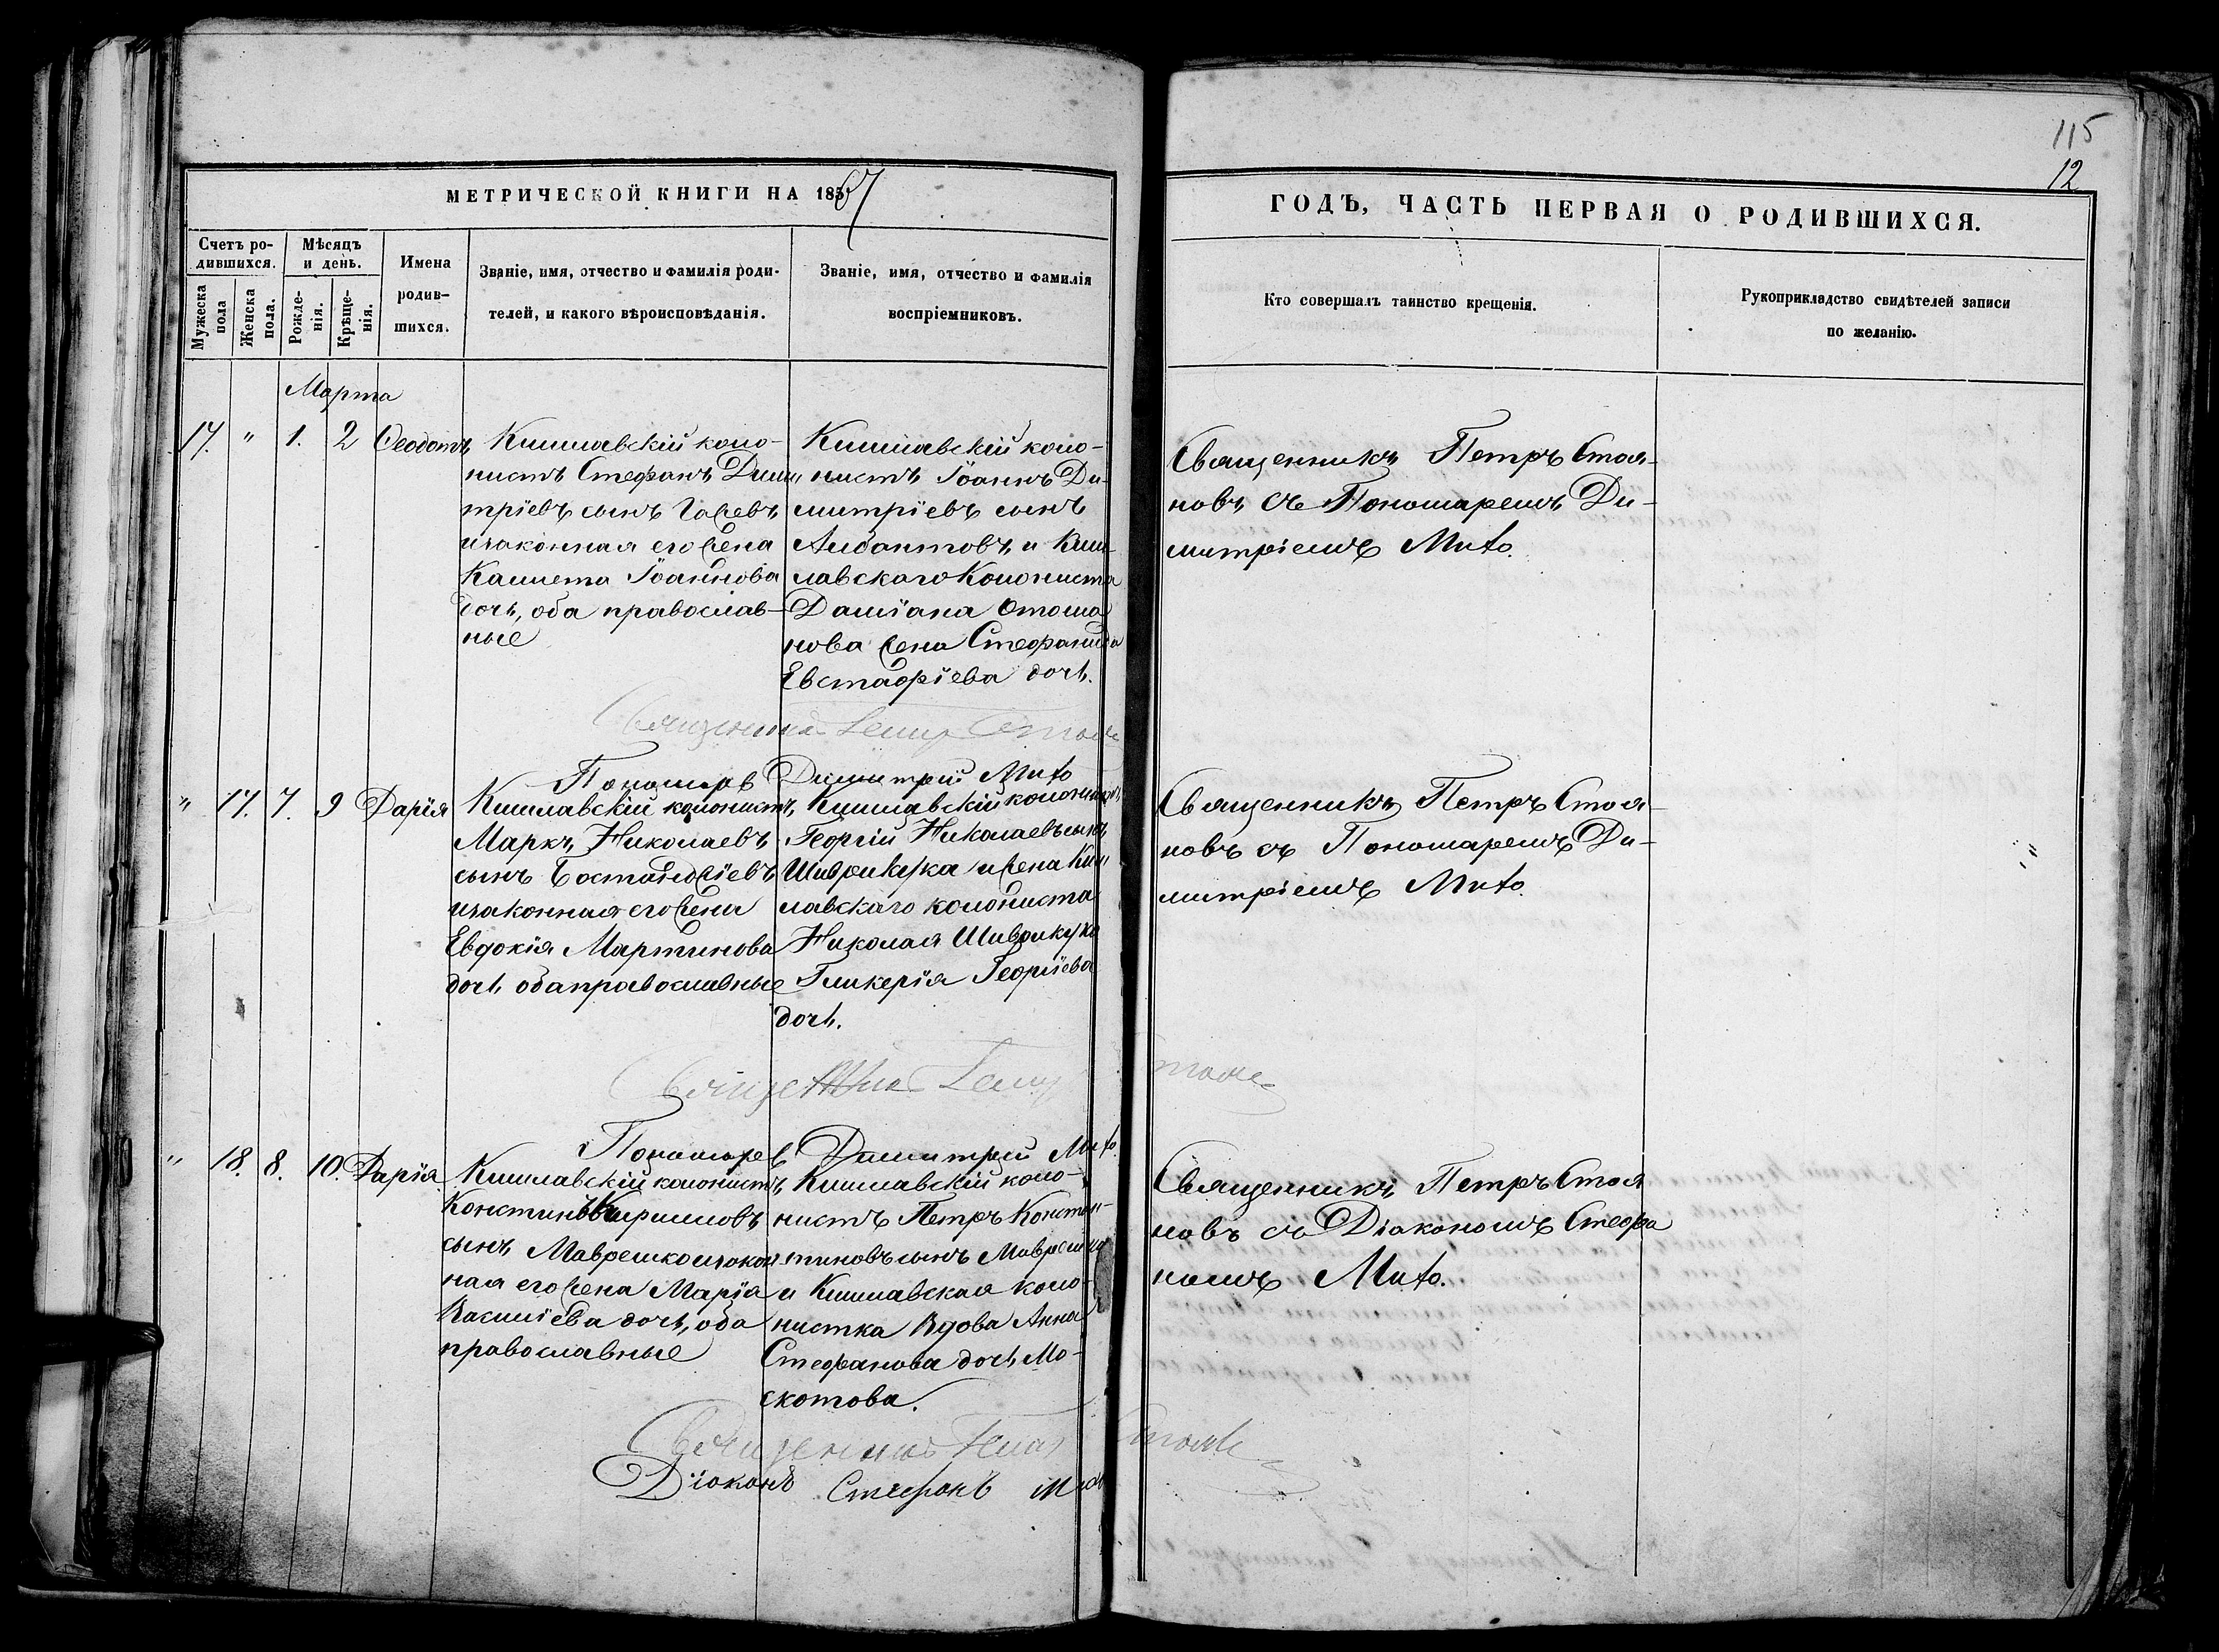 115
12
МЕТРИЧЕСКОЙ КНИГИ НА 1867
ГОДЪ, ЧАСТЬ ПЕРВАЯ О РОДИВШИХСЯ.
Счетъ ро-
дившихся.
Мужеска
пола
Женска
пола.
Мѣсяцъ
и день.
Рожде-
нія.
Крѣще-
нія.
Имена
родив-
шихся.
Званіе, имя, отчество и фамилія роди-
телей, и какого вѣроисповѣданія.
Званіе, имя, отчество и фамилія
воспріемниковъ.
Кто совершалъ таинство крещенія.
Рукоприкладство свидѣтелей записи
по желанію.
Марта
17. " 1. 2 Ѳеодотъ
Кишлавскій коло-
нистъ Стефанъ Дими
тріевъ сынъ
изаконная его жена
Іоаннова
дочь, оба православ-
ные
Кишлавскій коло-
нистъ Іоаннъ Ди-
митріевъ сынъ
и Киш
лавскаго Колониста
Даміана
нова жена Стефанида
Евстафіева дочь.
Священникъ Петръ Стоя-
новъ съ Пономаремъ Ди-
митріемъ Мито.
Священникъ Петръ
Пономарь Димитрій Мито
" 17. 7. 9 Дарія
Кишлавскій колонистъ
Маркъ Николаевъ
сынъ
изаконная его жена
Евдокія Мартинова
дочь оба православные
Кишлавскій колонистъ
Георгій Николаевъ сынъ
и жена Киш
лавскаго колониста
Николая
Гликерія Георгіева
дочь.
Священникъ Петръ Стоя-
новъ съ Пономаремъ Ди-
митріемъ Мито.
Священникъ Петръ
Пономарь Димитрій Мито
" 18. 8. 10. Дарія
Кишлавскій колонистъ
Кирилловъ
сынъ Маврешко изакон
ная его жена Марія
Василіева дочь, оба
православные
Кишлавскій коло-
нистъ Петръ Констан-
тиновъ сынъ Маврешко
и Кишлавская коло-
нистка Вдова Анна
Стефанова дочь Мо-
скотова.
Священникъ Петръ Стоя
новъ съ Діакономъ Стефа
номъ Мито.
Священникъ Петръ
Діаконъ Стефанъ Мито